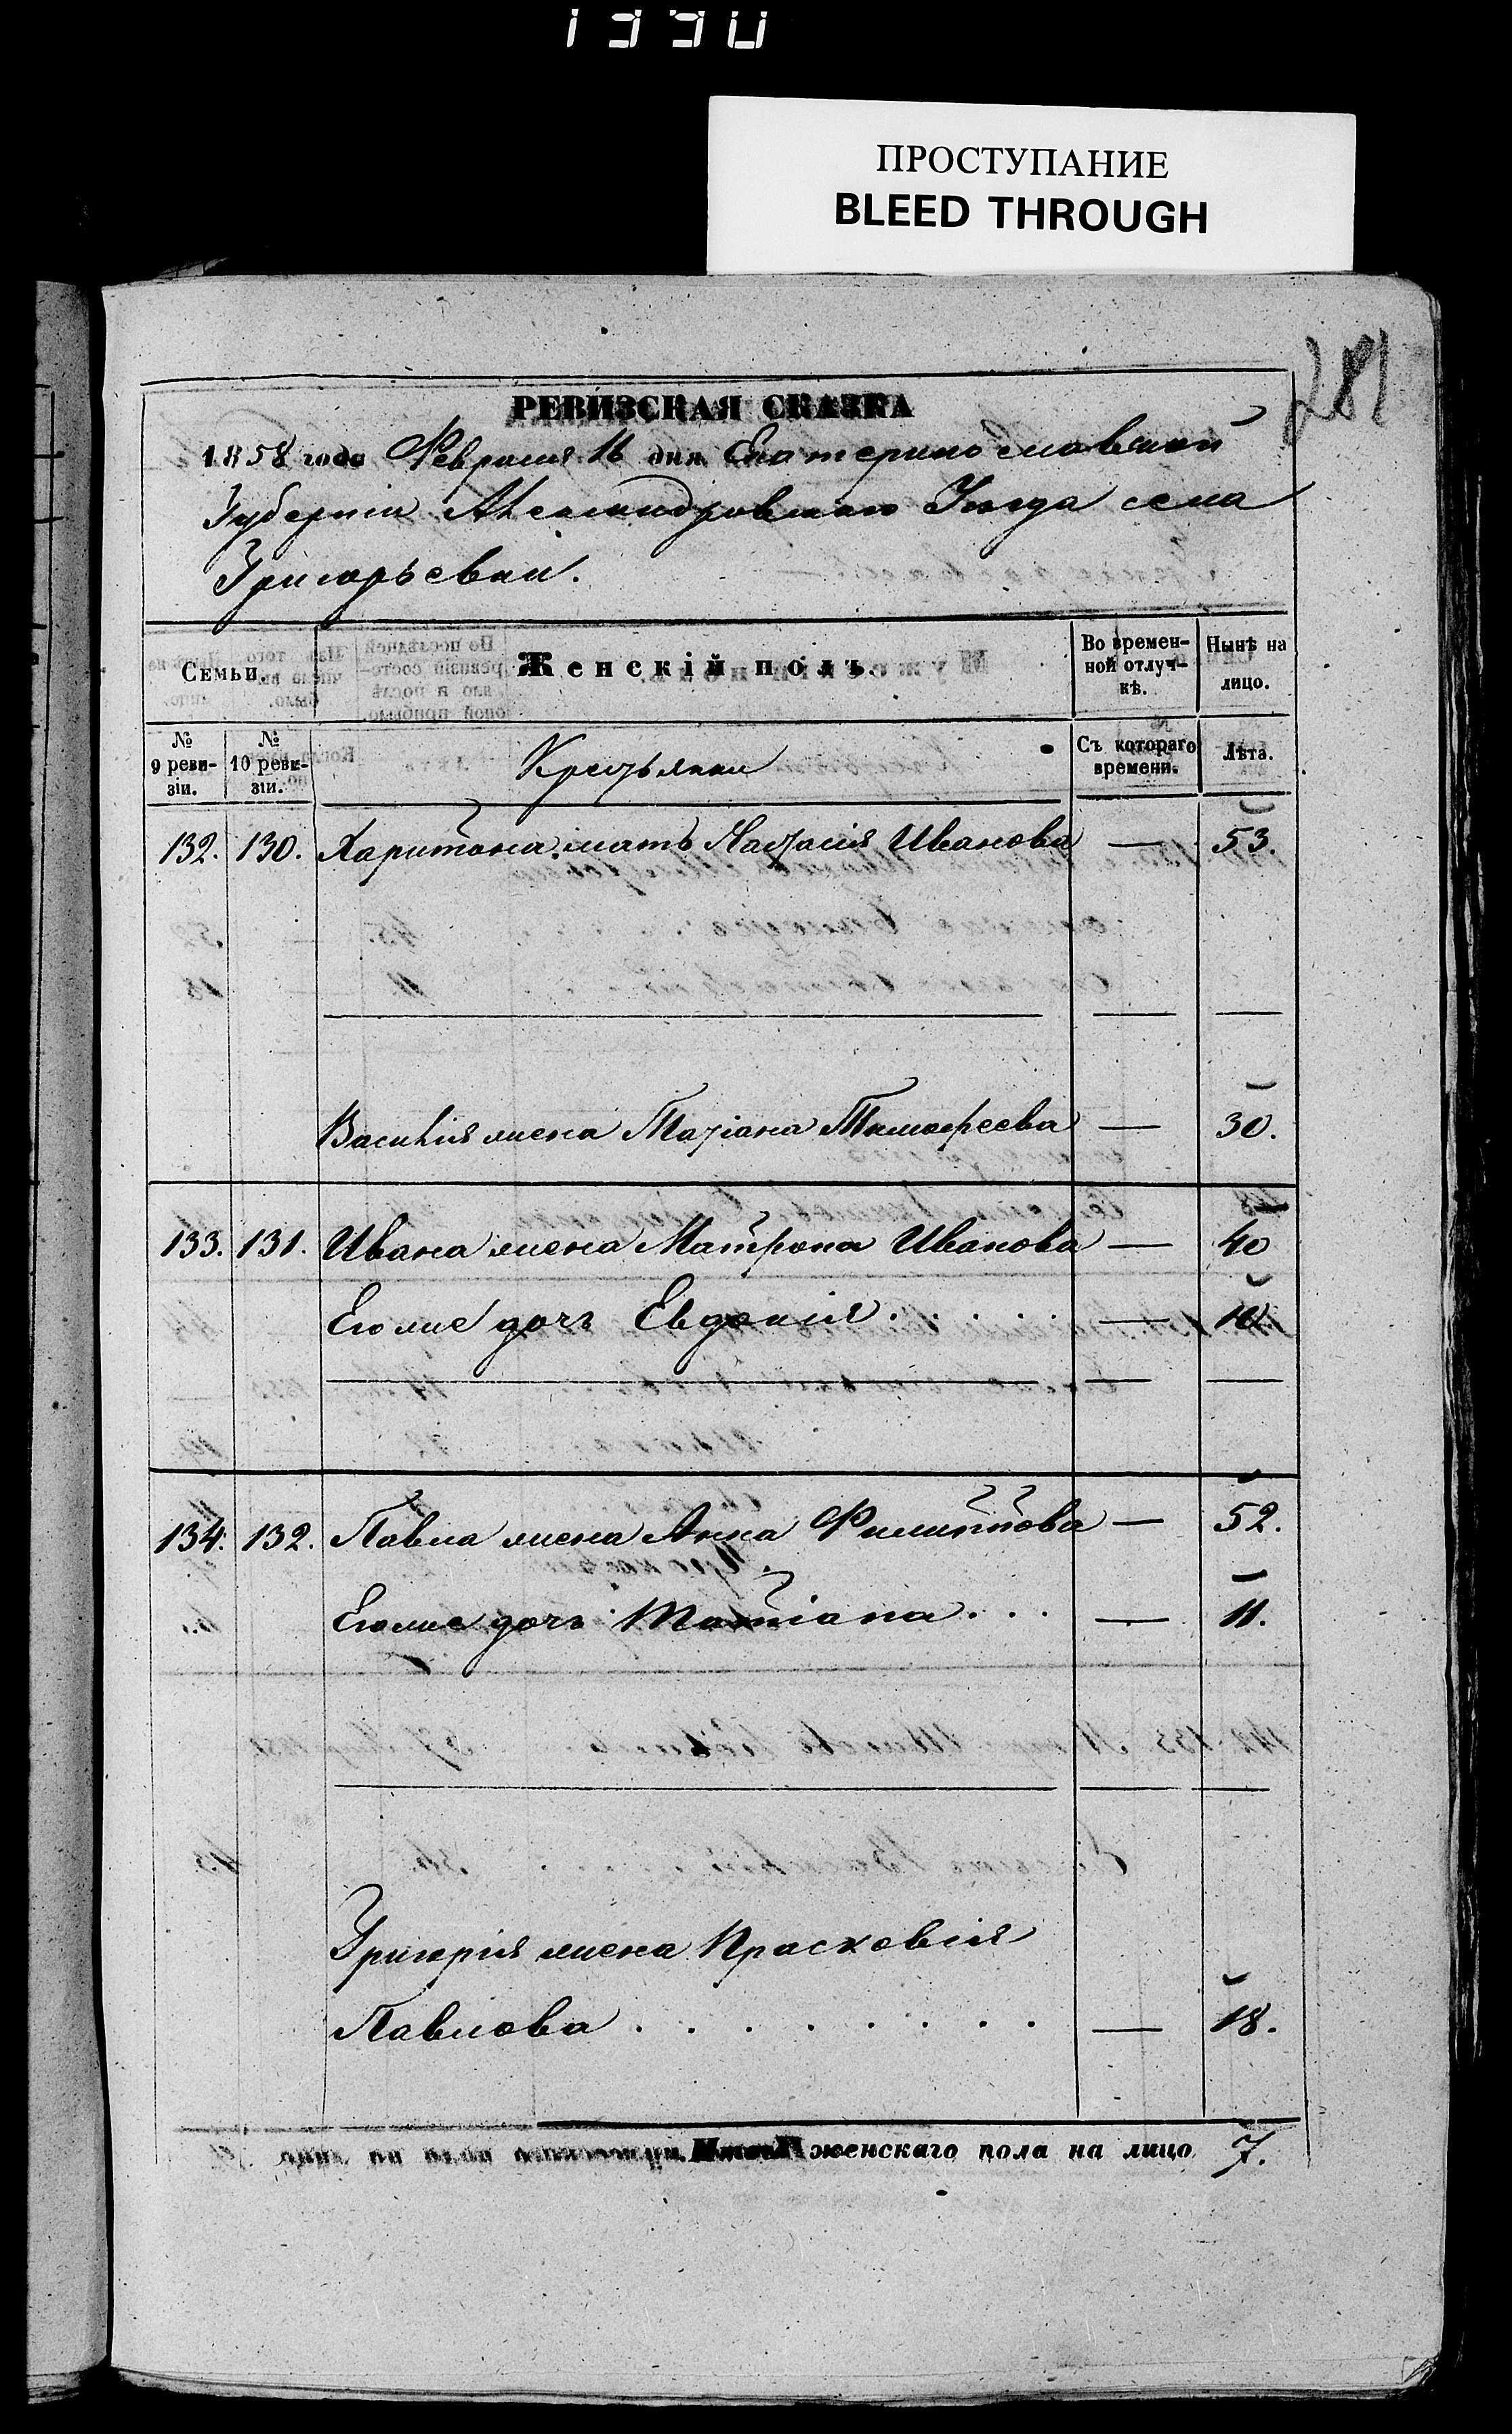 1990
ПРОСТУПАНИЕ
BLEED THROUGH
281
РЕВИЗСКАЯ СКАЗКА
1858 года Февраля 16 дня Екатеринославской
Губернiи Александровскаго Уѣзда села
Григорьевки.
Семьи.
Женскiй полъ.
Во времен-
ной отлуч-
кѣ.
Нынѣ на
лицо.
№
9 реви-
зiи.
№
10 реви-
зiи.
Крестьянки
Съ котораго
времени.
Лѣта.
132. 130. Харитона мать Настасiя Иванова — 53.
Василiя жена Татiана Тимофеева — 30.
133. 131. Ивана жена Матрона Иванова — 40
Его же дочь Евдокiя . . . . — 10
134. 132. Павла жена Анна Филиппова — 52.
Его же дочь Татiана . . . — 11.
Григорiя жена Прасковiя
Павлова . . . . . . . . — 18.
Итого женскаго пола на лицо 7.